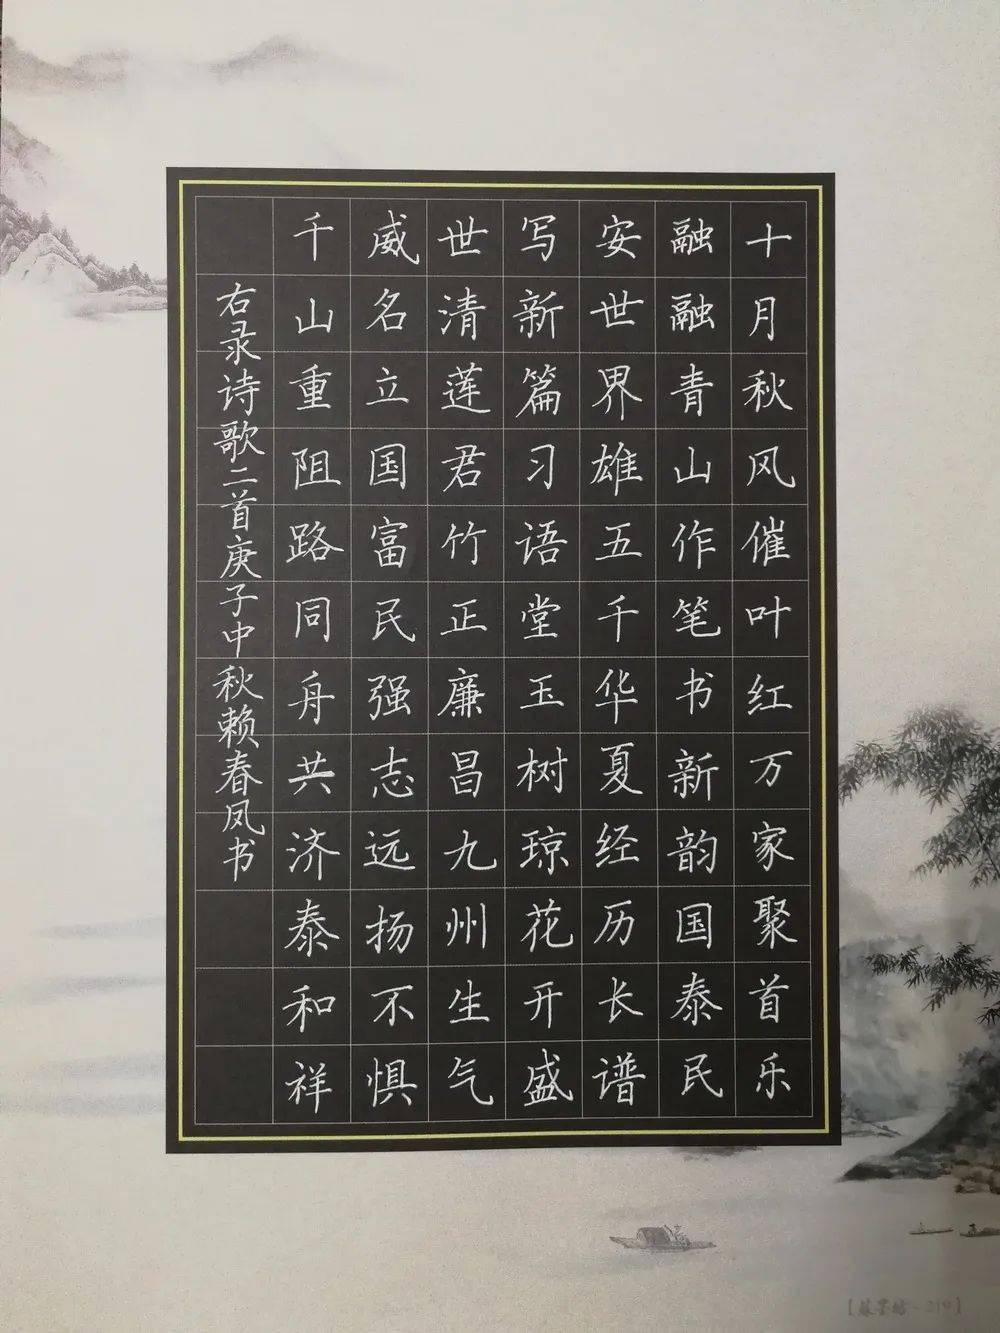 十月秋风催叶红万家聚首乐
融融青山作笔书新韵国泰民
安世界雄五千华夏经历长谱
写新篇习语堂玉树琼花开盛
世清莲君竹正廉昌九州生气
威名立国富民强志远扬不惧
千山重阻路同舟共济泰和祥
右录诗歌二首庚子中秋赖春凤书